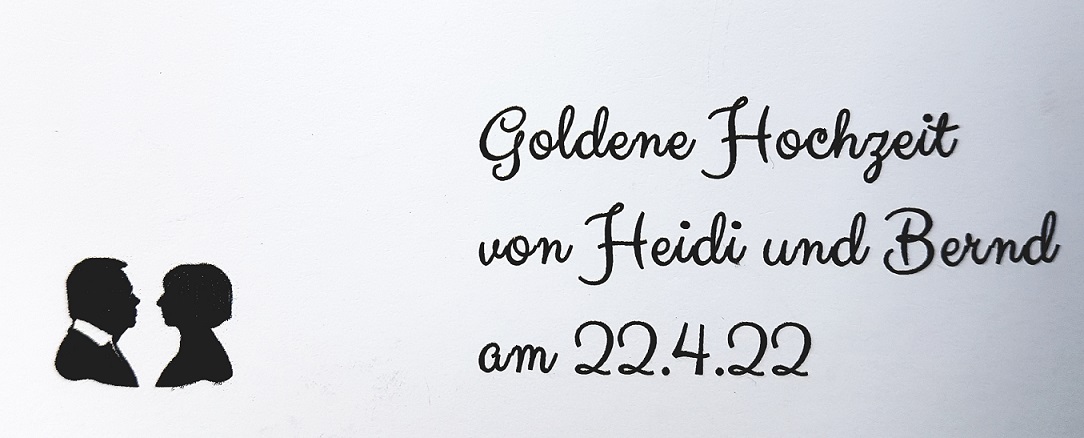 Goldene Hochzeit
von Heidi und Bernd
am 22.4.22